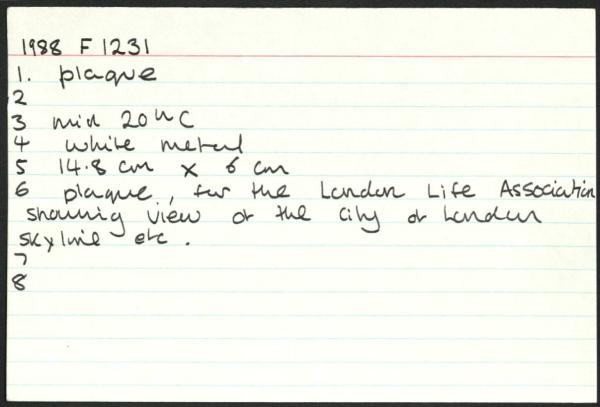 1988 F 1231
1. plaque
2
3 mid 20th C
4 white metal
5 14.8 cm x 6 cm
6 plaque, for the London Life Association
showing view of the city of London
skyline etc.
7
8